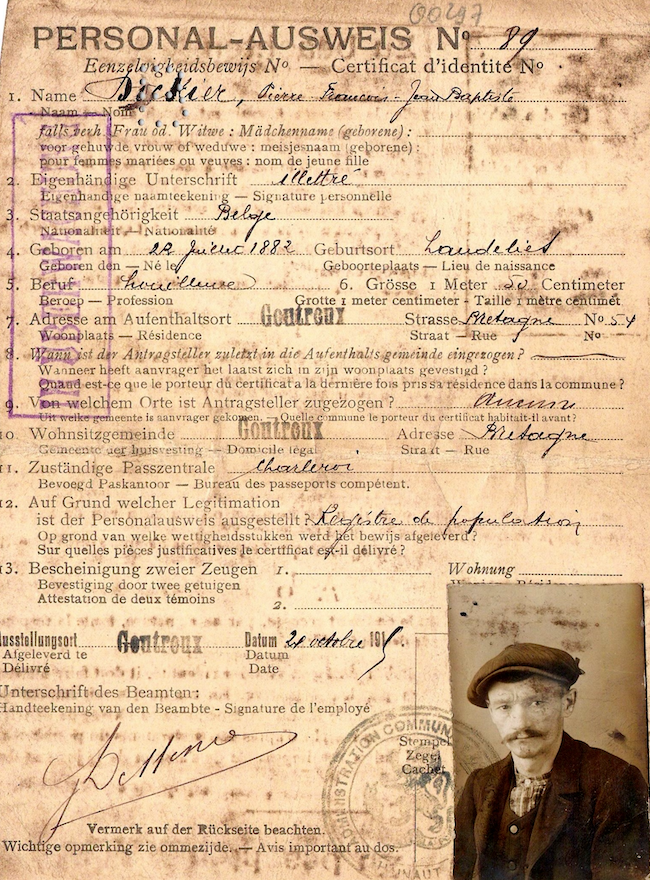 00297
PERSONAL-AUSWEIS Nº 89
Eenzelvigheidsbewijs Nº — Certificat d'identité Nº
1. Name Pierre François-Jean Baptiste
Naam — Nom
falls verh. Frau od. Witwe : Mädchenname (geborene) :
voor gehuwde vrouw of weduwe : meisjesnaam (geborene) :
pour femmes mariées ou veuves : nom de jeune fille
2. Eigenhändige Unterschrift illettré
Eigenhandige naamteekening — Signature personnelle
3. Staatsangehörigkeit Belge
Nationaliteit — Nationalité
4. Geboren am 22 Juillet 1882 Geburtsort Landelies
Geboren den — Né le Geboorteplaats — Lieu de naissance
5. Beruf houilleur 6. Grösse 1 Meter 50 Centimeter
Beroep — Profession Grotte 1 meter centimeter - Taille 1 mètre centimet
7. Adresse am Aufenthaltsort Goutroux Strasse Bretagne Nº 54
Woonplaats — Résidence Straat — Rue Nº
8. Wann ist der Antragsteller zuletzt in die Aufenthalts gemeinde eingezogen ?
Wanneer heeft aanvrager het laatst zich in zijn woonplaats gevestigd ?
Quand est-ce que le porteur du certificat a la dernière fois pris sa résidence dans la commune ?
9. Von welchem Orte ist Antragsteller zugezogen ? Aucun
Uit welke gemeente is aanvrager gekomen. — Quelle commune le porteur du certificat habitait-il avant ?
10. Wohnsitzgemeinde Goutroux Adresse Bretagne
Gemeente der huisvesting — Domicile légal Straat — Rue
11. Zuständige Passzentrale Charleroi
Bevoegd Paskantoor — Bureau des passeports compétent.
12. Auf Grund welcher Legitimation
ist der Personalausweis ausgestellt ? Registre de population
Op grond van welke wettigheidsstukken werd het bewijs afgeleverd ?
Sur quelles pièces justificatives le certificat est-il délivré ?
13. Bescheinigung zweier Zeugen 1. Wohnung
Bevestiging door twee getuigen
Attestation de deux témoins 2.
Ausstellungsort Goutroux Datum octobre 191
Afgeleverd te Datum
Délivré Date
Unterschrift des Beamten :
Handteekening van den Beambte - Signature de l'employé
Stempel
Zegel
Cachet
ADMINISTRATION COMMUN
HAINAUT
Vermerk auf der Rückseite beachten.
Wichtige opmerking zie ommezijde. — Avis important au dos.